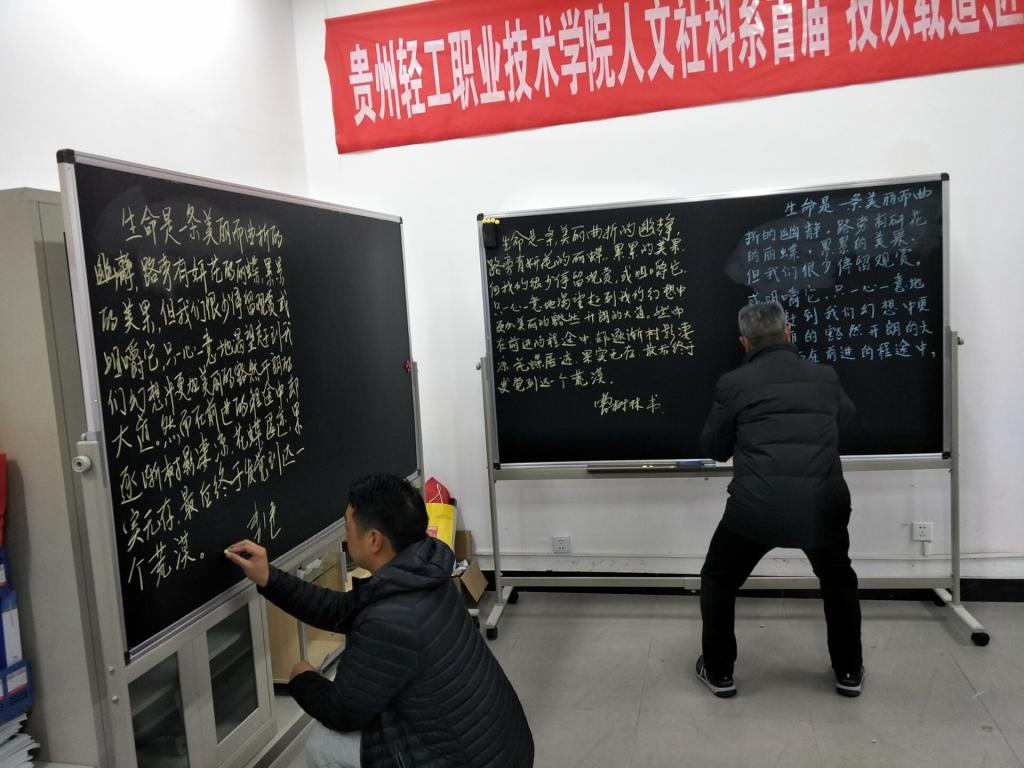 贵州轻工职业技术学院人文社科系首届 技以载道、匠
生命是一条美丽而曲折的
幽静,路旁有妍花的丽蝶,累累
的美果,但我们很少停留观赏,或
咀嚼它,只一心一意地渴望赶到我
们幻想中更地美丽的豁然开朗的
大道。然而在前进的程途中,却
逐渐树影凄凉,花蝶匿迹,果
实无存,最后终于发觉到达一
个荒漠。
生命是一条美丽曲折的幽静,
路旁有妍花的丽蝶,累累的美果
但我们很少停留观赏,或咀嚼它,
只一心一意地渴望赶到我们幻想中
更加美丽的豁然开朗的大道,然中
在前进的程途中,却逐渐树影凄
凉,花蝶匿迹,果实无存,最后终于
发觉到达一个荒漠。
树林书
生命是一条美丽而曲
折的幽静,路旁有妍花
的丽蝶,累累的美果。
但我们很少停留观赏,
或咀嚼它,只一心一意地
赶到我们幻想中更
丽的豁然开朗的大
在前进的程途中,